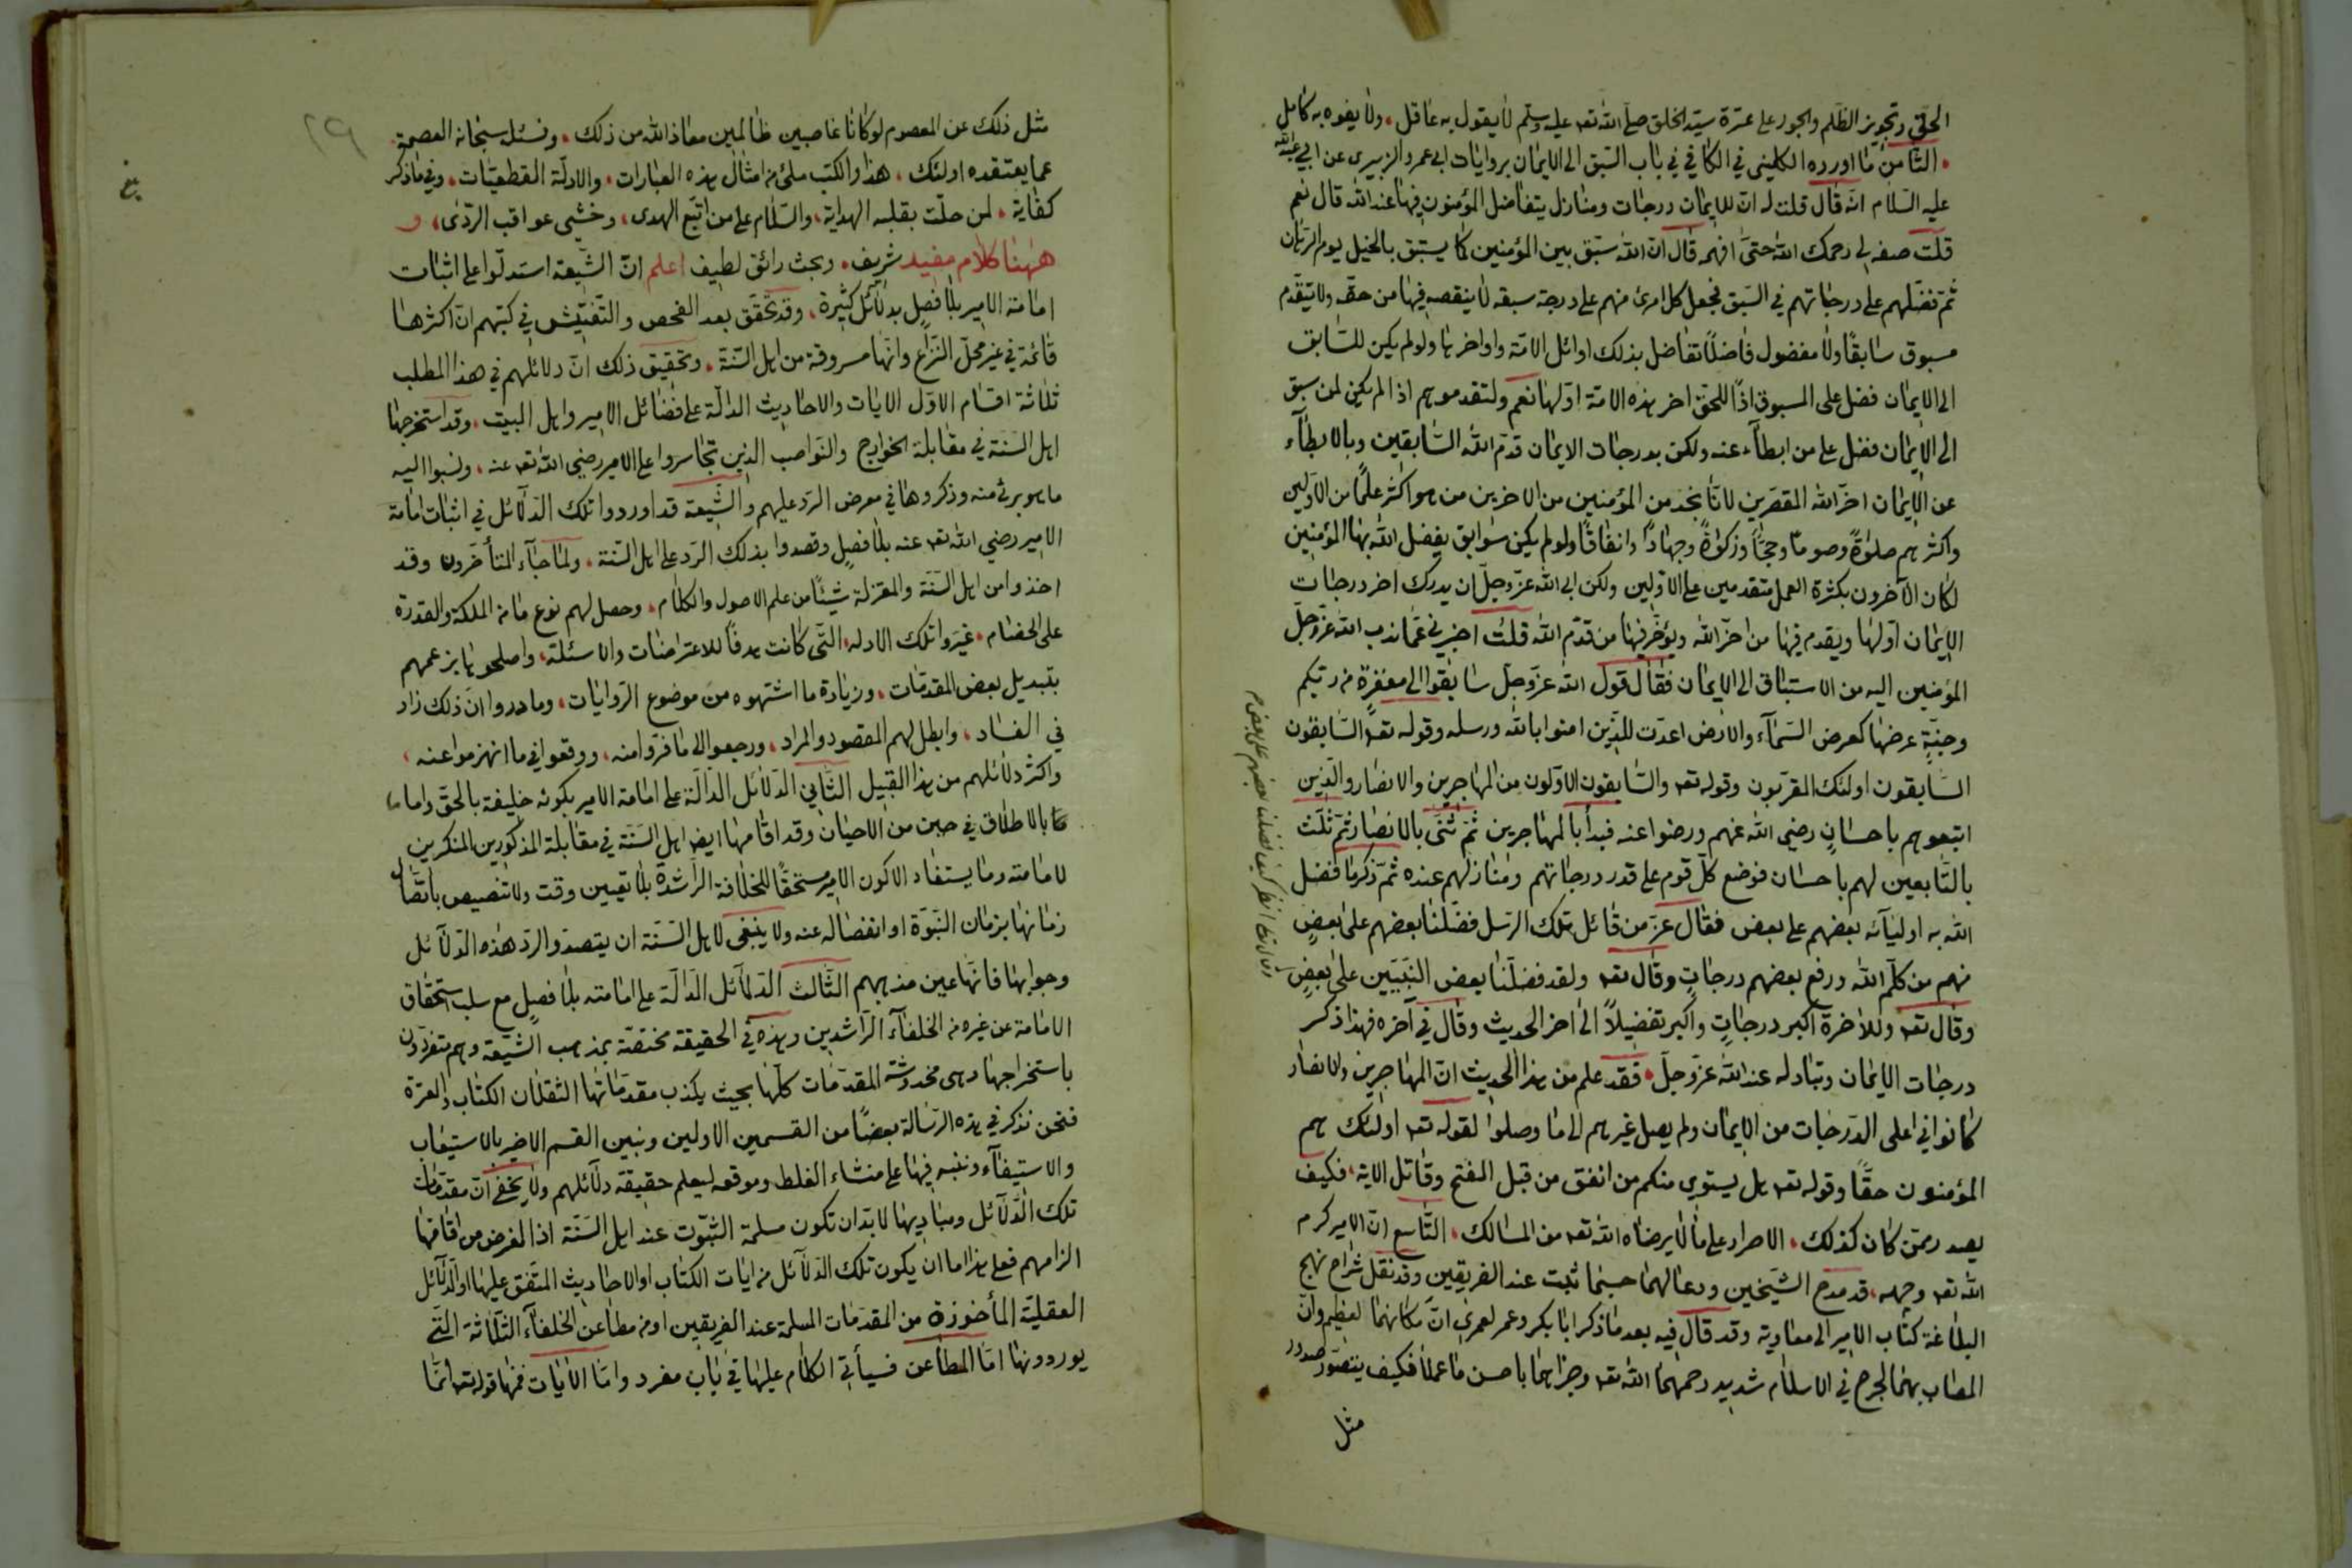 الحق وتجويز الظلم والجور على عترة سيد الخلق صلى الله تعه عليه وسلم لا يقول به عاقل، ولا يفوه به كامل
الثامن ما اورده الكليني في الكافي في باب السبق الى الايمان بروايات ابي عمرو الزبيري عن ابي عبد الله
عليه السلام انه قال قلت له ان للايمان درجات ومنازل يتفاضل المؤمنون فيها عند الله قال نعم
قلت صفه لي رحمك الله حتى افهمه قال ان الله سبق بين المؤمنين كما يستبق بالخيل يوم الرهان
ثم فضلهم على درجاتهم في السبق فجعل كل امرئ منهم على درجة سبقه لا ينقصه فيها من حقه ولا يتقدم
مسبوق سابقًا ولا مفضول فاضلًا تفاضل بذلك اوائل الامة واواخرها ولو لم يكن للسابق
الى الايمان فضل على المسبوق اذًا للحق اخر هذه الامة اولها نعم ولتقدموهم اذا لم يكن لمن سبق
الى الايمان فضل على من ابطأ عنه ولكن بدرجات الايمان قدم الله السابقين وبالابطاء
عن الايمان اخر الله المقصرين لانا نجد من المؤمنين من الاخرين من هو اكثر علمًا من الاولين
واكثرهم صلوةً وصومًا وحجًا وزكوةً وجهادًا وانفاقًا ولو لم يكن سوابق يفضل الله بها المؤمنين
لكان الآخرون بكثرة العمل متقدمين على الاولين ولكن ابى الله عز وجل ان يدرك اخر درجات
الايمان اولها ويقدم فيها من اخر الله ويؤخر فيها من قدم الله قلت اخبرني عما ندب الله عز وجل
المؤمنين اليه من الاستباق الى الايمان فقال قول الله عز وجل سابقوا الى مغفرة من ربكم
وجنةٍ عرضها كعرض السماء والارض اعدت للذين امنوا بالله ورسله وقوله تعه السابقون
السابقون اولئك المقربون وقوله تعه والسابقون الاولون من المهاجرين والانصار والذين
اتبعوهم باحسانٍ رضي الله عنهم ورضوا عنه فبدأ بالمهاجرين ثم ثنى بالانصار ثم ثلث
بالتابعين لهم باحسان فوضع كل قوم على قدر درجاتهم ومنازلهم عنده ثم ذكر ما فضل
الله به اوليائه بعضهم على بعض فقال عز من قائل تلك الرسل فضلنا بعضهم على بعضٍ
منهم من كلم الله ورفع بعضهم درجاتٍ وقال تعه ولقد فضلنا بعض النبيين على بعضٍ
وقال تعه انظر كيف فضلنا بعضهم على بعض
وقال تعه وللآخرة اكبر درجاتٍ واكبر تفضيلًا الى اخر الحديث وقال في آخره فهذا ذكر
درجات الايمان وتبادله عند الله عز وجل، فقد علم من هذا الحديث ان المهاجرين والانصار
كانوا في اعلى الدرجات من الايمان ولم يصل غيرهم الى ما وصلوا لقوله تعه اولئك هم
المؤمنون حقًا وقوله تعه هل يستوي منكم من انفق من قبل الفتح وقاتل الاية، فكيف
يصدر ممن كان كذلك، الاصرار على ما لا يرضاه الله تعه من المسالك، التاسع ان الامير كرم
الله تعه وجهه، قد مدح الشيخين ودعا لهما حسبما ثبت عند الفريقين وقد نقل شراح نهج
البلاغة كتاب الامير الى معاوية وقد قال فيه بعد ما ذكر ابا بكر وعمر لعمري ان مكانهما لعظيم وان
المصاب بهما لجرح في الاسلام شديد رحمهما الله تعه وجزاهما باحسن ما عملا فكيف يتصور صدور
مثل
٢٩
بلغ
مثل ذلك عن المعصوم لو كانا غاصبين ظالمين معاذ الله من ذلك، ونسئل سبحانه العصمة
عما يعتقده اولئك، هذا والكتب ملئ من امثال هذه العبارات، والادلة القطعيات، وفي ما ذكر
كفاية، لمن حلت بقلبه الهداية، والسلام على من اتبع الهدى، وخشي عواقب الردى، و
ههنا كلام مفيد شريف، وبحث رائق لطيف اعلم ان الشيعة استدلوا على اثبات
امامة الامير بلا فصلٍ بدلائل كثيرة، وقد تحقق بعد الفحص والتفتيش في كتبهم ان اكثرها
قائمة في غير محل النزاع وانها مسروقة من اهل السنة، وتحقيق ذلك ان دلائلهم في هذا المطلب
ثلاثة اقسام الاول الايات والاحاديث الدالة على فضائل الامير واهل البيت، وقد استخرجها
اهل السنة في مقابلة الخوارج والنواصب الذين تجاسروا على الامير رضي الله تعه عنه، ونسبوا اليه
ما هو برئ منه وذكروها في معرض الرد عليهم والشيعة قد اوردوا تلك الدلائل في اثبات امامة
الامير رضي الله تعه عنه بلا فصلٍ وقصدوا بذلك الرد على اهل السنة، ولما جاء المتأخرون وقد
اخذوا من اهل السنة والمعتزلة شيئًا من علم الاصول والكلام، وحصل لهم نوع ما من الملكة والقدرة
على الخصام، غيروا تلك الادلة، التي كانت هدفًا للاعتراضات والاسئلة، واصلحوها بزعمهم
بتبديل بعض المقدمات، وزيادة ما اشتهوه من موضوع الروايات، وما دروا ان ذلك زاد
في الفساد، وابطل لهم المقصود والمراد، ورجعوا الى ما فروا منه، ووقعوا في ما انهزموا عنه،
واكثر دلائلهم من هذا القبيل الثاني الدلائل الدالة على امامة الامير بكونه خليفة بالحق واماما
بالاطلاق في حين من الاحيان وقد اقامها ايضا اهل السنة في مقابلة المذكورين المنكرين
لامامته وما يستفاد الا كون الامير مستحقًا للخلافة الراشدة بلا تعيين وقت ولا تنصيص باتصال
زمانها بزمان النبوة او انفصاله عنه ولا ينبغي لاهل السنة ان يتصدوا لرد هذه الدلائل
وجوابها فانها عين مذهبهم الثالث الدلائل الدالة على امامته بلا فصلٍ مع سلب استحقاق
الامامة عن غيره من الخلفاء الراشدين وهذه في الحقيقة مختصة بمذهب الشيعة وهم متفردون
باستخراجها وهي مخدوشة المقدمات كلها بحيث يكذب مقدماتها الثقلان الكتاب والعترة
فنحن نذكر في هذه الرسالة بعضًا من القسمين الاولين ونبين القسم الاخير بالاستيعاب
والاستيفاء وننبه فيها على منشاء الغلط وموقعه ليعلم حقيقة دلائلهم ولا يخفى ان مقدمات
تلك الدلائل ومباديها لا بد ان تكون مسلمة الثبوت عند اهل السنة اذ الغرض من اقامتها
الزامهم فعلى هذا اما ان يكون تلك الدلائل من ايات الكتاب او الاحاديث المتفق عليها او الدلائل
العقلية المأخوذة من المقدمات المسلمة عند الفريقين او من مطاعن الخلفاء الثلاثة التي
يوردونها اما المطاعن فسيأتي الكلام عليها في باب مفرد واما الايات فمنها قوله تعه انما